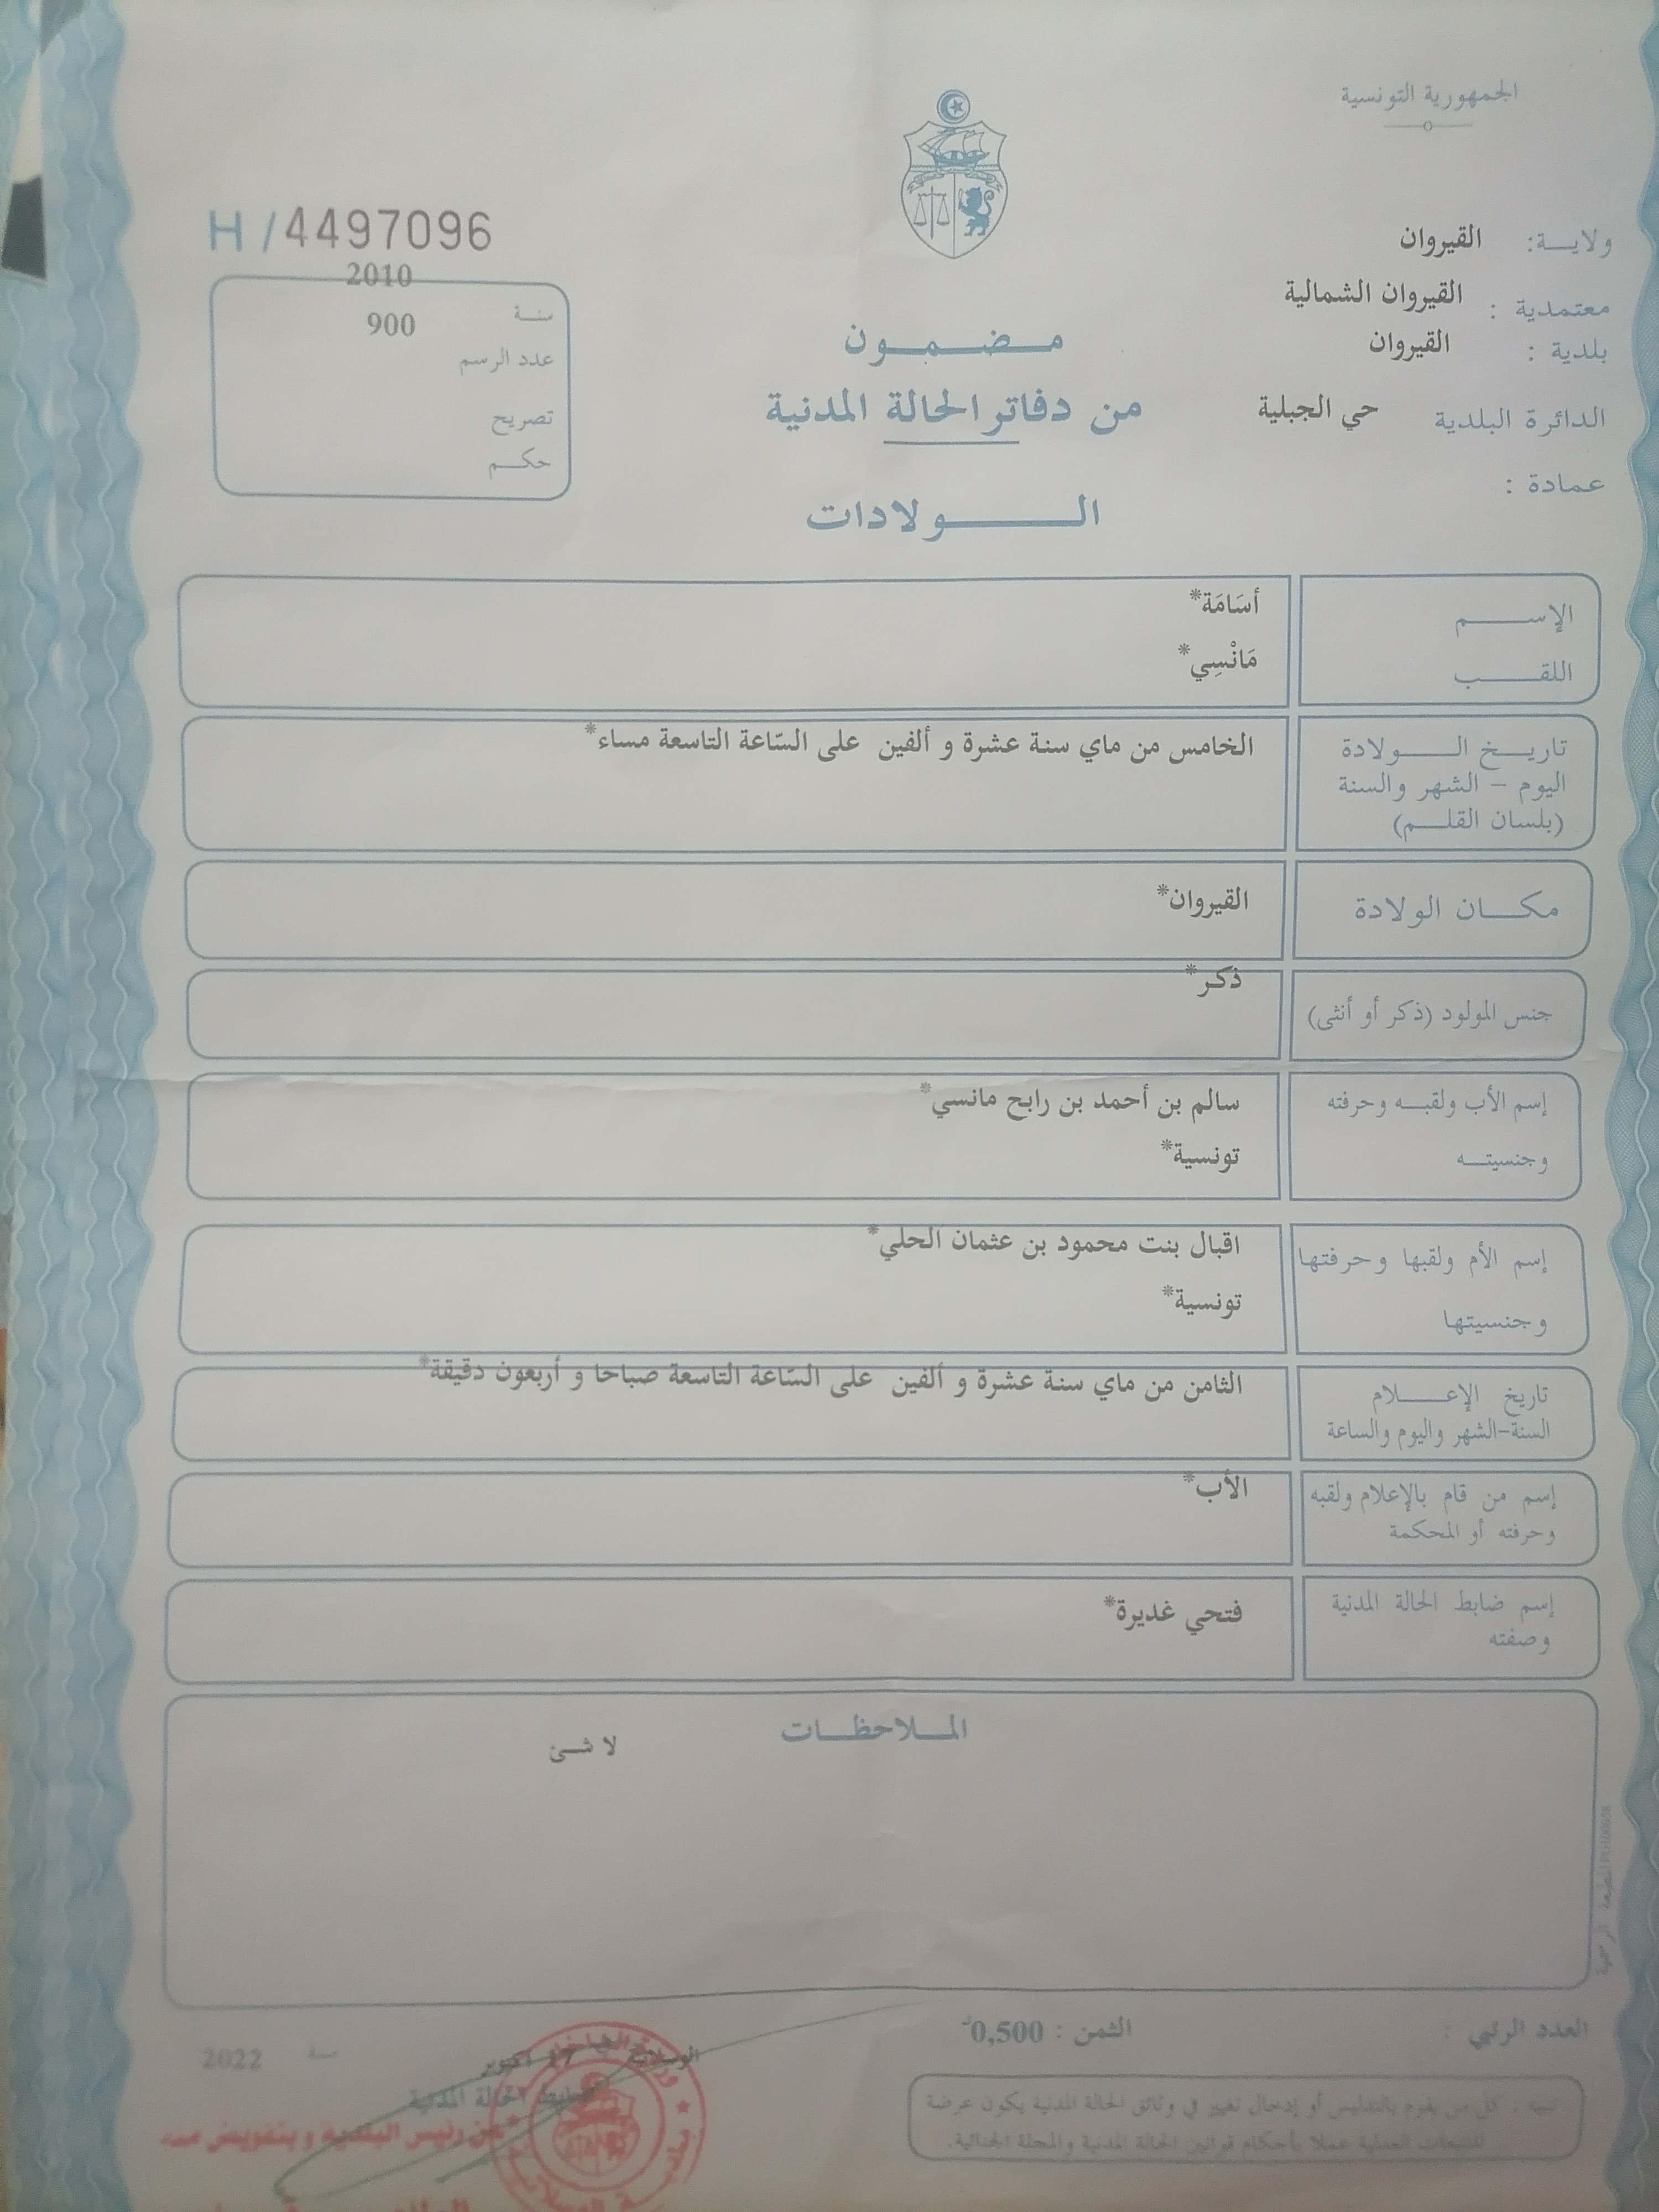 الجمهورية التونسية
ولايـــة: القيروان
معتمدية : القيروان الشمالية
بلدية : القيروان
الدائرة البلدية حي الجبلية
عمادة :
H / 4497096
2010
سنـة
900
عدد الرسم
تصريح
حكـــم
مـــضـــمـــون
من دفاتر الحالة المدنية
الـــــــولادات
الإســـــم أسَامَة*
اللقـــــب مَانْسِي*
تاريـــخ الـــــولادة الخامس من ماي سنة عشرة و ألفين على السّاعة التاسعة مساء*
اليوم – الشهر والسنة
(بلسان القلـــم)
مكـــان الولادة القيروان*
جنس المولود (ذكر أو أنثى) ذكر*
إسم الأب ولقبـــه وحرفته سالم بن أحمد بن رابح مانسي*
وجنسيتـــه تونسية*
إسم الأم ولقبها وحرفتها اقبال بنت محمود بن عثمان الحلي*
وجنسيتها تونسية*
تاريخ الإعـــــلام الثامن من ماي سنة عشرة و ألفين على السّاعة التاسعة صباحا و أربعون دقيقة*
السنة-الشهر واليوم والساعة
إسم من قام بالإعلام ولقبه الأب*
وحرفته أو المحكمة
إسم ضابط الحالة المدنية فتحي غديرة*
وصفته
الملـــاحظـــات
لا شئ
العدد الرتبي :
الثمن : 0,500د
الوسلاتية 17 أكتوبر سنة 2022
ضابط الحالة المدنية
عن رئيس البلدية و بتفويض منه
تنبيه : كل من يقوم بالتدليس أو إدخال تغيير في وثائق الحالة المدنية يكون عرضة
للتتبعات العدلية عملا بأحكام قوانين الحالة المدنية والمجلة الجنائية.